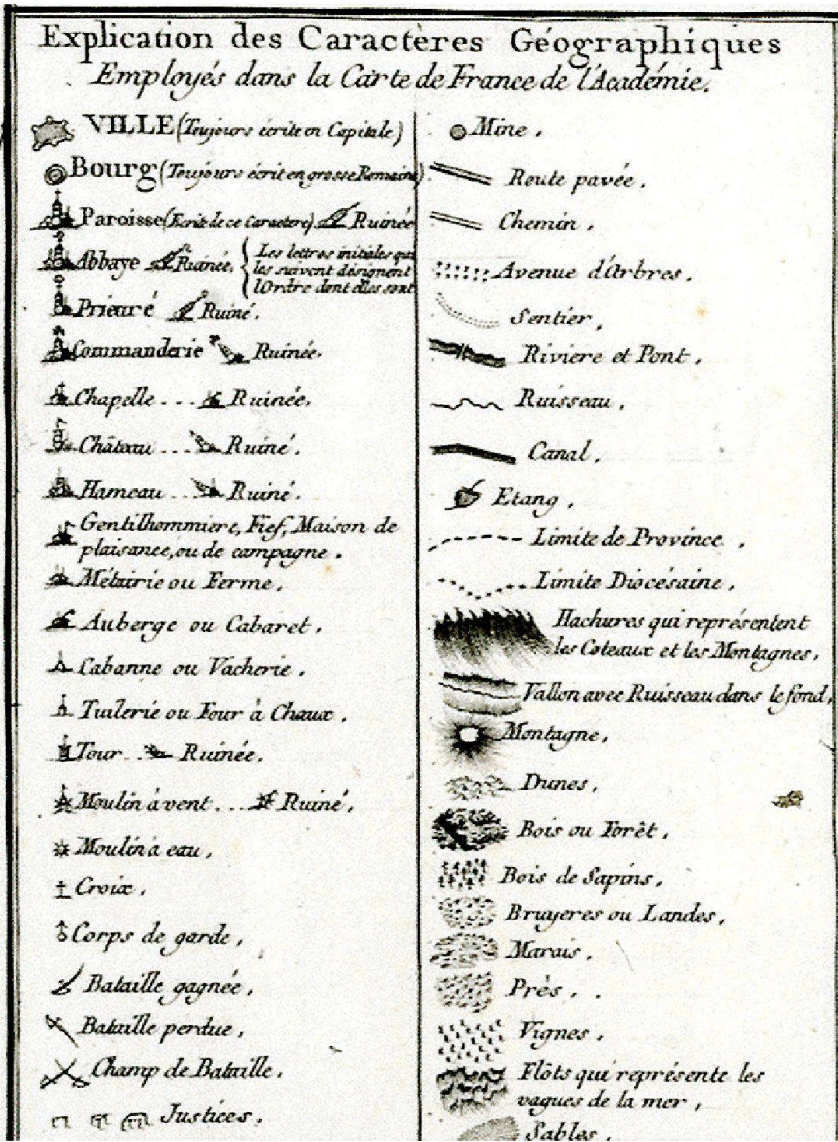 Explication des Caractères Géographiques
Employés dans la Carte de France de l'Académie.
VILLE (Toujours écrite en Capitale)
Bourg (Toujours écrit en grosse Romaine)
Paroisse (Ecrite de ce Caractere) Ruinée
Abbaye Ruinée. { Les lettres initiales qui
les suivent désignent
l'Ordre dont elles sont
Prieuré Ruiné.
Commanderie Ruinée.
Chapelle ... Ruinée.
Château ... Ruiné.
Hameau ... Ruiné.
Gentilhommiere, Fief, Maison de
plaisance, ou de campagne.
Métairie ou Ferme.
Auberge ou Cabaret.
Cabanne ou Vacherie.
Tuilerie ou Four à Chaux.
Tour .. Ruinée.
Moulin à vent ... Ruiné.
Moulin à eau.
Croix.
Corps de garde.
Bataille gagnée.
Bataille perdue.
Champ de Bataille.
Justices.
Mine.
Route pavée.
Chemin.
Avenue d'Arbres.
Sentier.
Riviere et Pont.
Ruisseau.
Canal.
Etang.
Limite de Province.
Limite Diocésaine.
Hachures qui représentent
les Coteaux et les Montagnes.
Vallon avec Ruisseau dans le fond.
Montagne.
Dunes.
Bois ou Forêt.
Bois de Sapins.
Bruyeres ou Landes.
Marais.
Près.
Vignes.
Flôts qui représente les
vagues de la mer,
Sables.